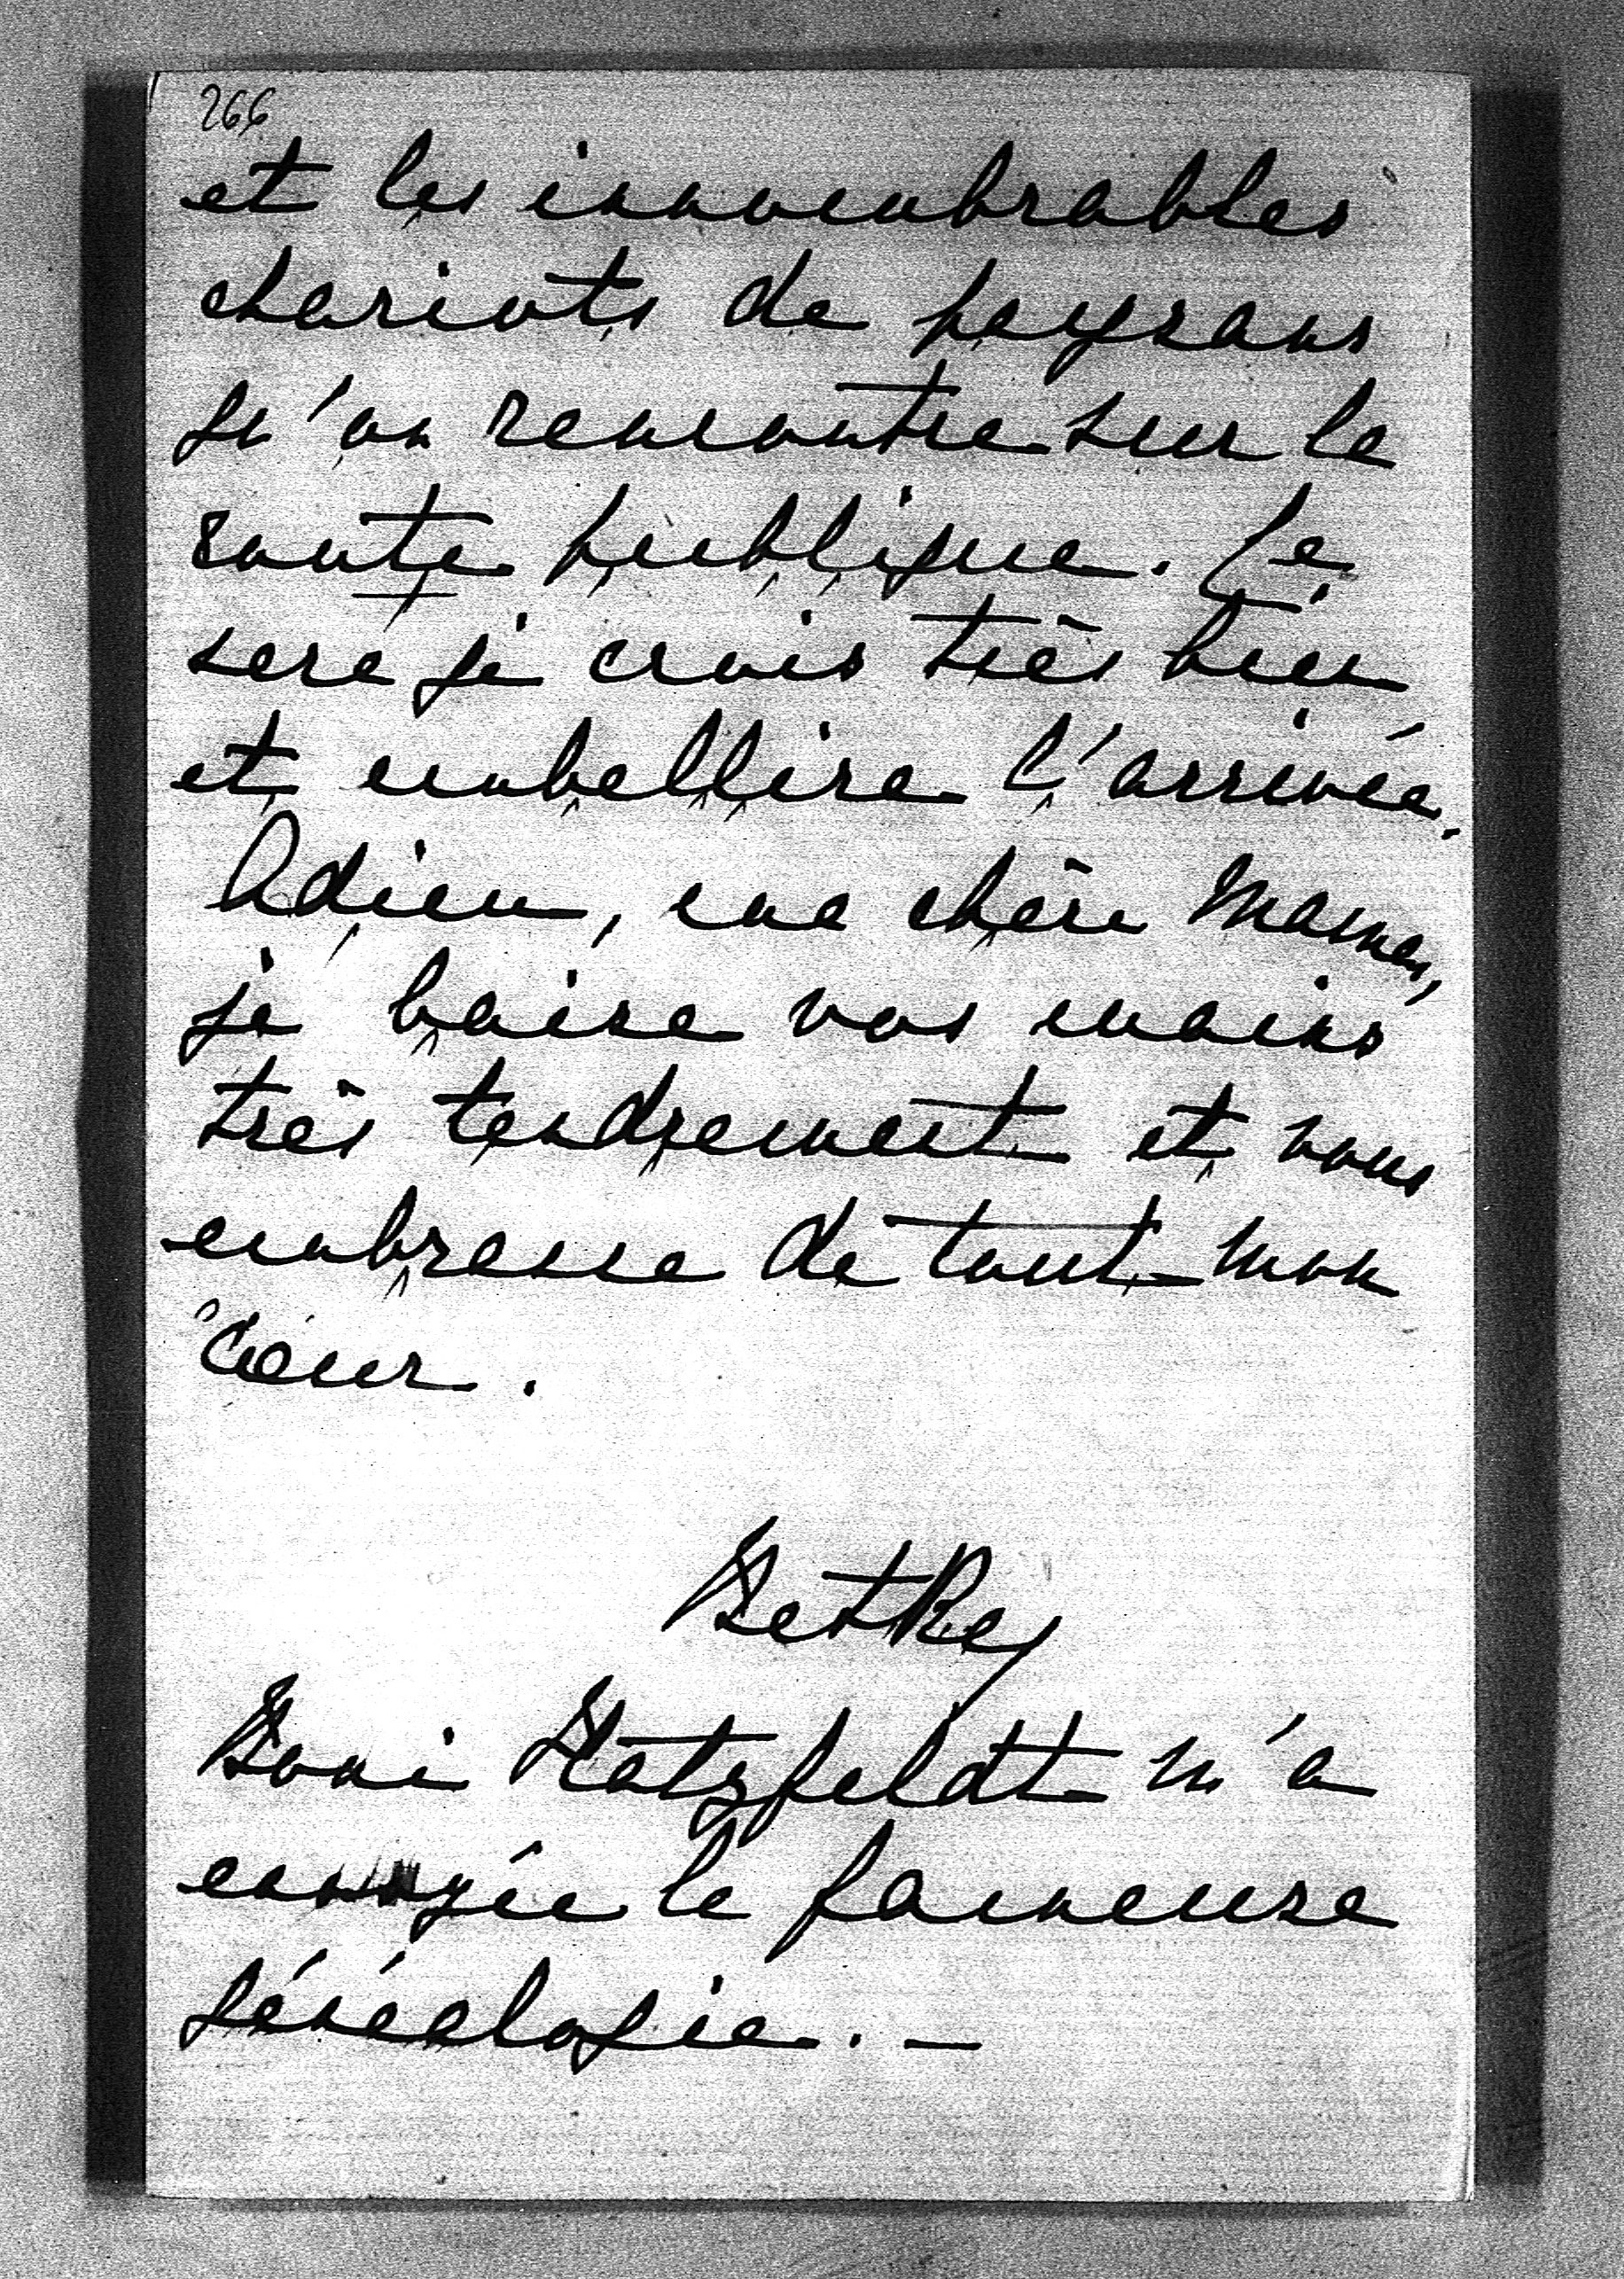 266
et les innombrables
chariots de paysans
qu'on rencontre sur la
route publique. Ce
sera je crois très bien
et embellira l'arrivée.
Adieu, ma chère Maman,
je baise vos mains
très tendrement et vous
embrasse de tout mon
cœur.
Betka
Boni Hatzfeldt m'a
envoyée la fameuse
généalogie. —